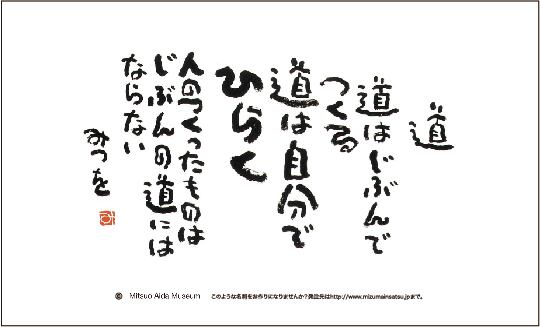 道
道はじぶんで
つくる
道は自分で
ひらく
人のつくったものは
じぶんの道には
ならない
みつを
© Mitsuo Aida Museum
このような名刺をお作りになりませんか？発注先はhttp://www.mizumainsatsu.jpまで。